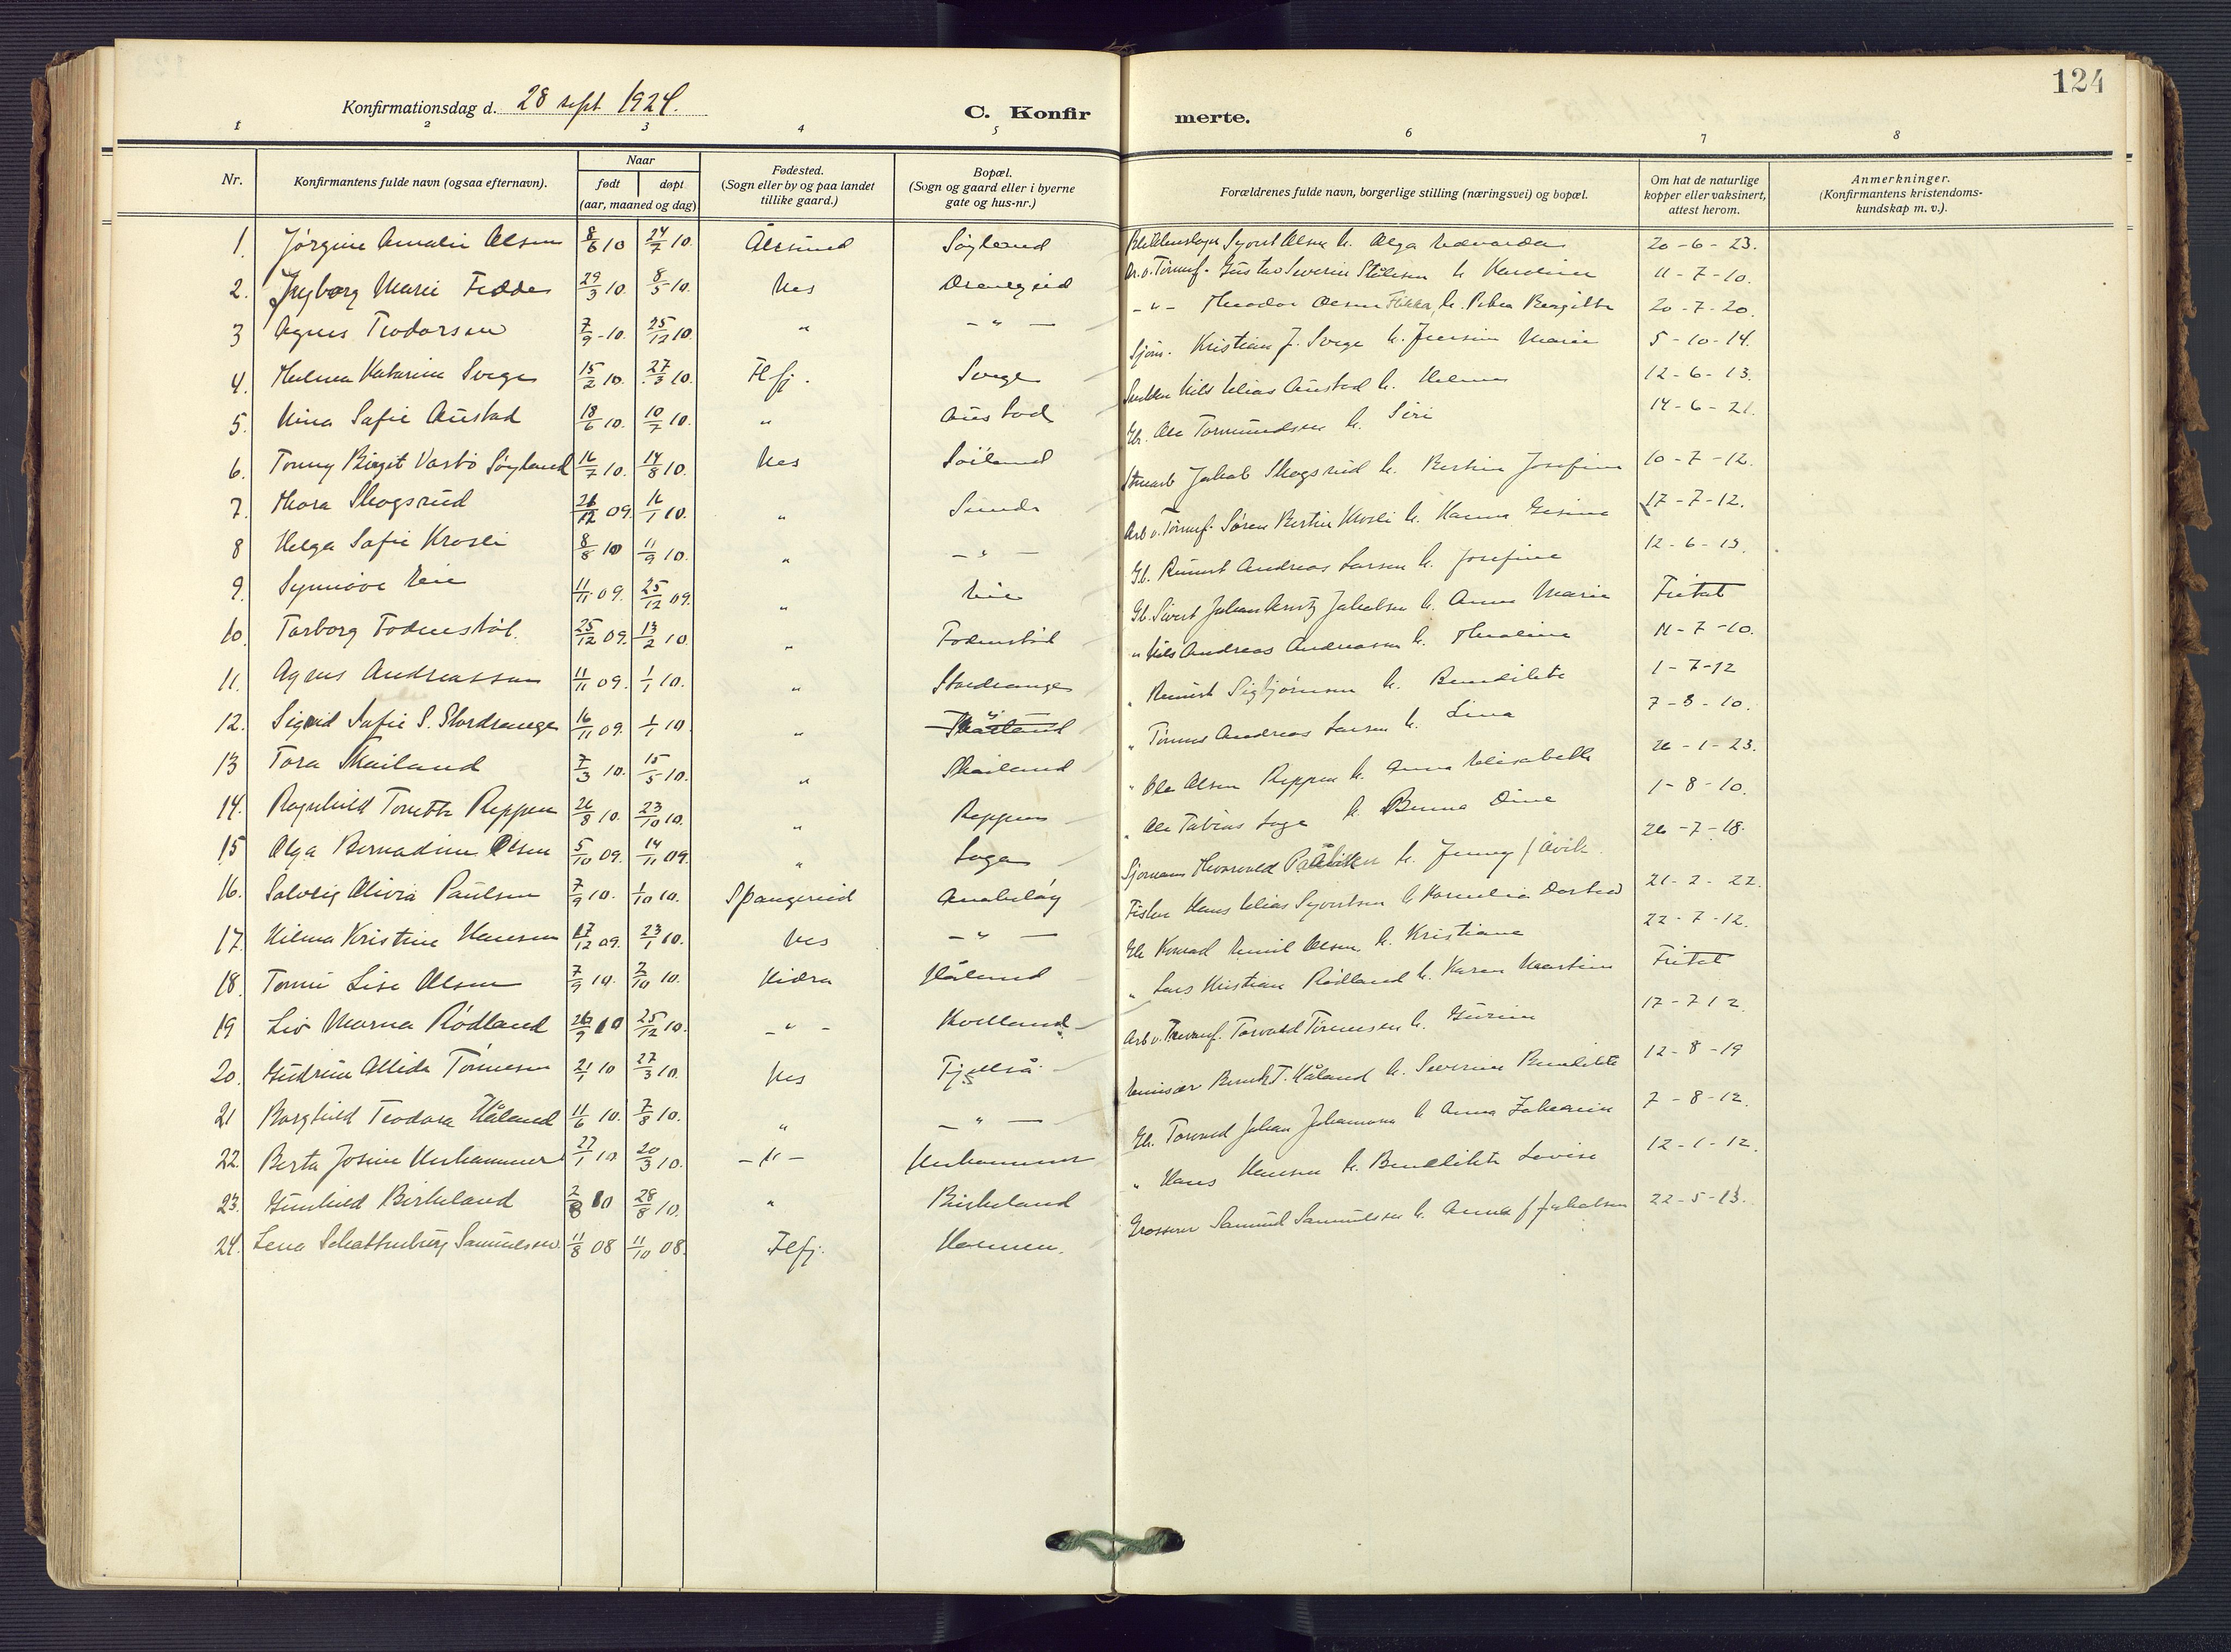 124
Konfirmationsdag d. 28 sept. 1924.
C. Konfir merte.
1 2 3 4 5 6 7 8
Nr.
Konfirmantens fulde navn (ogsaa efternavn).
Naar
født døpt
(aar, maaned og dag)
Fødested.
(Sogn eller by og paa landet
tillike gaard.)
Bopæl.
(Sogn og gaard eller i byerne
gate og hus-nr.)
Forældrenes fulde navn, borgerlige stilling (næringsvei) og bopæl.
Om hat de naturlige
kopper eller vaksinert,
attest herom.
Anmerkninger.
(Konfirmantens kristendoms-
kundskap m. v.).
1. Jørgine Amalie Olsen 8/6 10 24/7 10. Ålesund Søyland Syvert Olsen h. Olga 20-6-23.
2. Ingborg Marie Fedde 29/3 10. 8/5 10. Nes Drangeid Gustav Severin Stålesen h. Karoline 11-7-10.
3 Agnes Teodorsen 7/9 -10. 25/12 10. " - " - - " - Theodor Olsen Flikka, h. Petra Bergitte 20-7-20.
4. Helma Katarine Svege 15/2 10. 27/3 10. Flfj. Svege Sjøm. Kristian J. Svege h. Marie 5-10-14.
5. Nina Sofie Austad 18/6 10. 10/7 10. " Austad Nils Elias Austad h. Helene 12-6-13.
6. Tonny Birgit Vasbø Søyland 16/7 10. 14/8 10. Nes Søiland Gb. Ole Tormundsen h. Siri 14-6-21.
7. Thora Skogsrud 26/12 09. 16/1 10. " Sunde Stuert Jakob Skogsrud h. Bertine Josefine 10-7-12.
8 Helga Sofie Krosli 8/8 10 11/9 10. " - " - Arb v. Tønnf. Søren Bertin Krosli h. Hanna Gesine 17-7-12.
9. Synnøve Eeie 11/11 09. 25/12 09. " Eeie Gb. Reinert Andreas Larsen h. Josefine 12-6-13.
10. Torborg Fodenstøl 25/12 09. 13/2 10. " Fodenstøl Gb. Sivert Johan Arntz Jakobsen h. Anna Marie Fritat
11. Agnes Andreassen 11/11 09. 1/1 10. " Stordrange " Nils Andreas Andreassen h. Thealine 11-7-10.
12. Sigrid Sofie S. Stordrange 16/11 09. 1/1 10. " " " Reinert Sigbjørnsen h. Benedikte 1-7-12
13 Tora Skailand 7/3 10. 15/5 10. " Skailand " Tønnes Andreas Larsen h. Lina 7-8-10.
14. Ragnhild Tonette Reppen 26/8 10. 23/10 10. " Reppen " Ole Olsen Reppen h. Anna Elisabeth 26-1-23.
15 Olga Bernadine Olsen 5/10 09. 14/11 09. " Loga " Ole Tobias Loga h. Berna Dine 1-8-10.
16. Solveig Olivia Paulsen 7/9 10. 1/10 10. Spangereid Anabeløy Sjømann h. Jenny f Åvik. 26-7-18.
17. Hilma Kristine Hansen 17/12 09. 23/1 10. Nes - " - Fisker Hans Elias Syvertsen h Kornelia 21-2-22.
18. Tonni Lise Olsen 7/9 10. 2/10 10. Hidra Håland Gb Konrad Emil Olsen h. Kristiane 22-7-12.
19 Liv Marna Rødland 26/9 10 25/12 10. - " - Kvelland " Lars Kristian Rødland h. Karen Martine Fritat
20. Gudrun Alida Tønnesen 21/1 10 27/3 10. Nes Fjellså Arb v. Tønnf. Torvald Tønnesen h. Gurine 17-7 12
21 Borghild Teodora Håland 11/6 10. 7/8 10. " - " - Emisær Bernt T. Håland h. Severine Benedikte 12-8-19
22. Berta Josine Urhammer 27/1 10 20/3 10. - " - Urhammer Gb. Torvald Johan Johannesen h Anna Zakarine 7-8-12.
23. Gunhild Birkeland 2/8 10 28/8 10. " Birkeland " Hans Hansen h. Benedikte Lovise 12-1-12.
24. Lena Schattenburg Samuelsen 11/8 08 11/10 08. Flfj. Holmen. Grosserer Samuel Samuelsen h. Anna f Jakobsen 22-5-13.